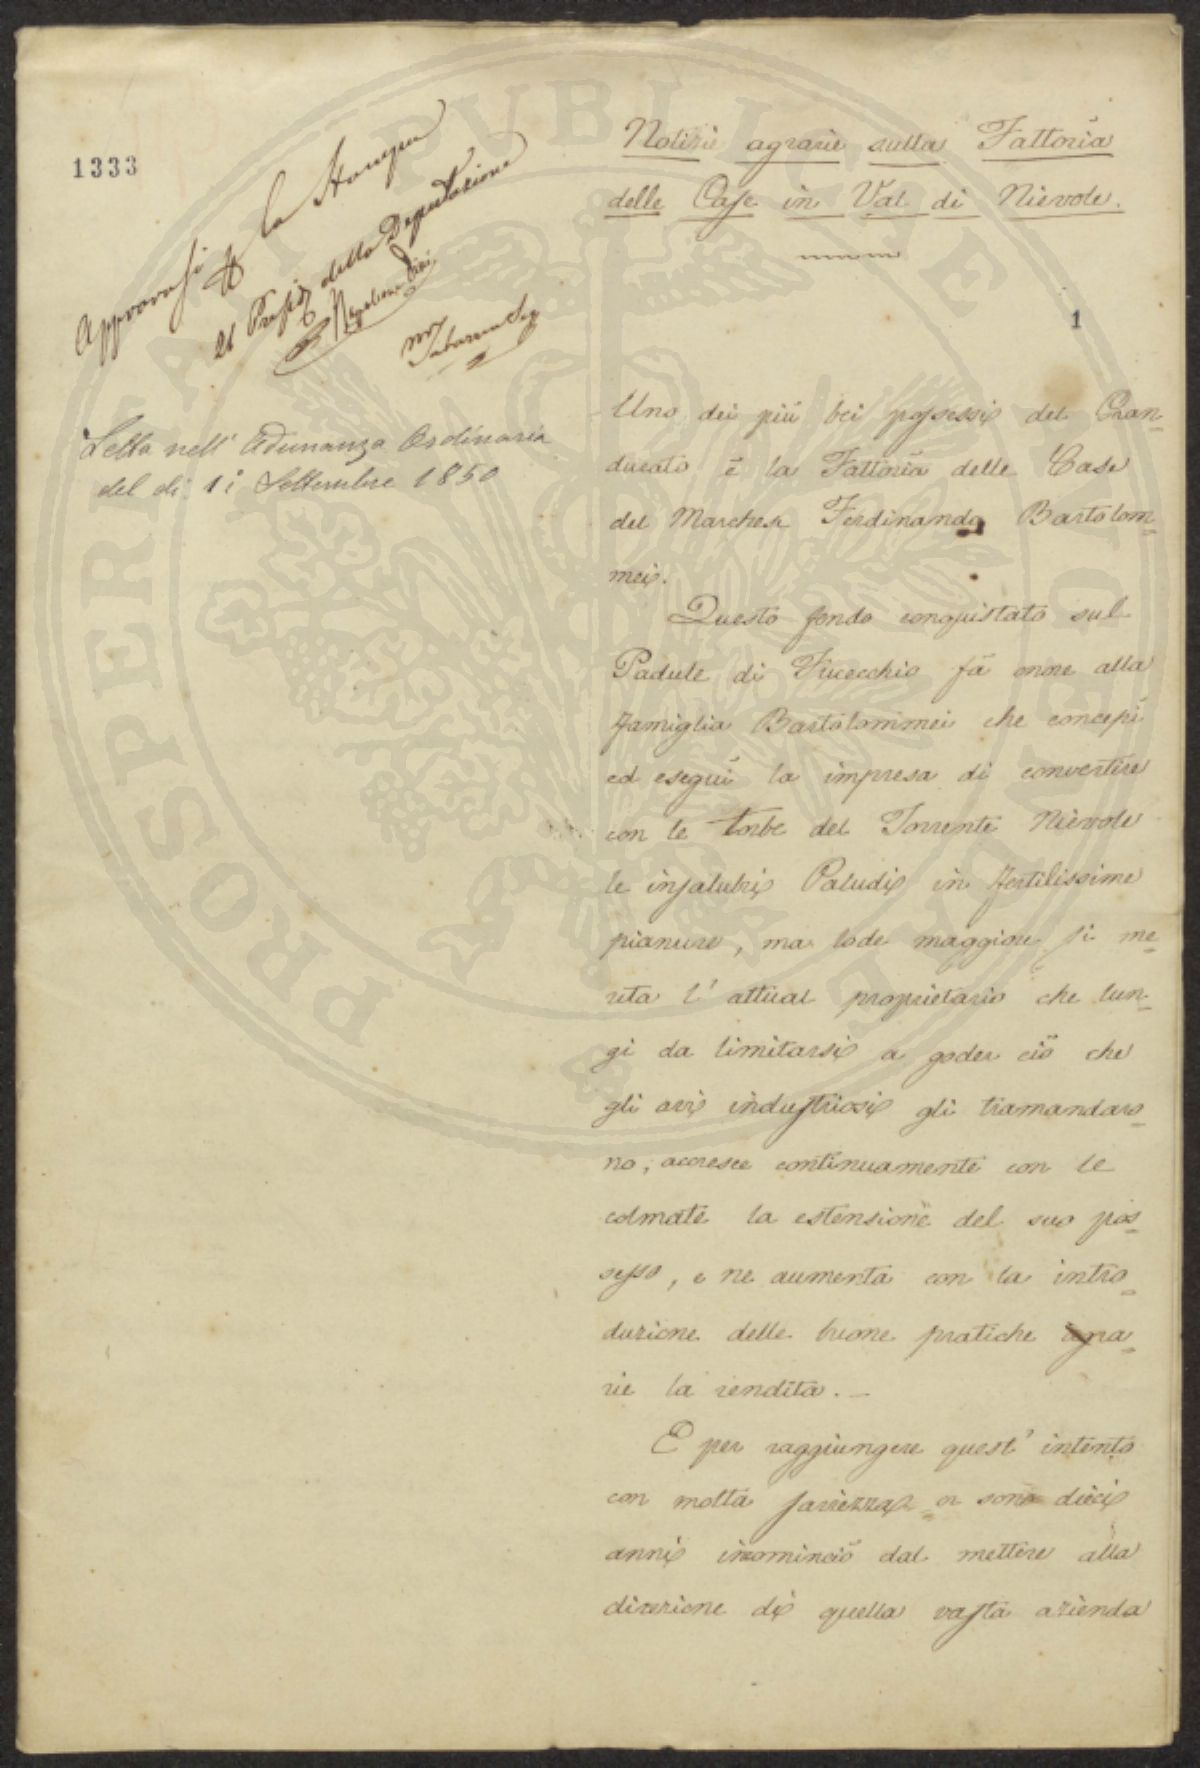 1333
Notizie agrarie sulla Fattoria
delle Case in Val di Nievole.
Approvasi per la Stampa
Il Presid della Deputazione
Letta nell' Adunanza Ordinaria
del dì 1i Settembre 1850
1
Uno dei più bei possessi del Gran-
ducato è la Fattoria delle Case
del Marchese Ferdinando Bartolom-
mei.
Questo fondo conquistato sul
Padule di Fucecchio fà onore alla
famiglia Bartolommei che concepì
ed eseguì la impresa di convertire
con le torbe del Torrente Nievole
le insalubri Paludi in fertilissime
pianure, ma lode maggiore si me-
rita l' attual proprietario che lun-
gi da limitarsi a goder ciò che
gli avi industriosi gli tramandaro-
no, accresce continuamente con le
colmate la estensione del suo pos-
sesso, e ne aumenta con la intro-
duzione delle buone pratiche agra-
rie la rendita. —
E per raggiungere quest' intento
con molta saviezza or sono dieci
anni incominciò dal mettere alla
direzione di quella vasta azienda
PROSPERITATI PUBLICAE AUGENDAE